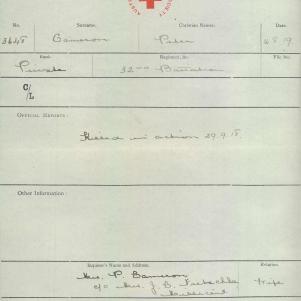 No. Surname. Christian Names.
Cameron Peter
Rank. Regiment, &c. File No.
Private 32nd Battalion
C/
/L
OFFICIAL REPORTS:
Killed in action 29.9.18.
Other Information:
Enquirer's Name and Address. Relation.
Mrs. P. Cameron
c/o Mrs. J. B. Wife